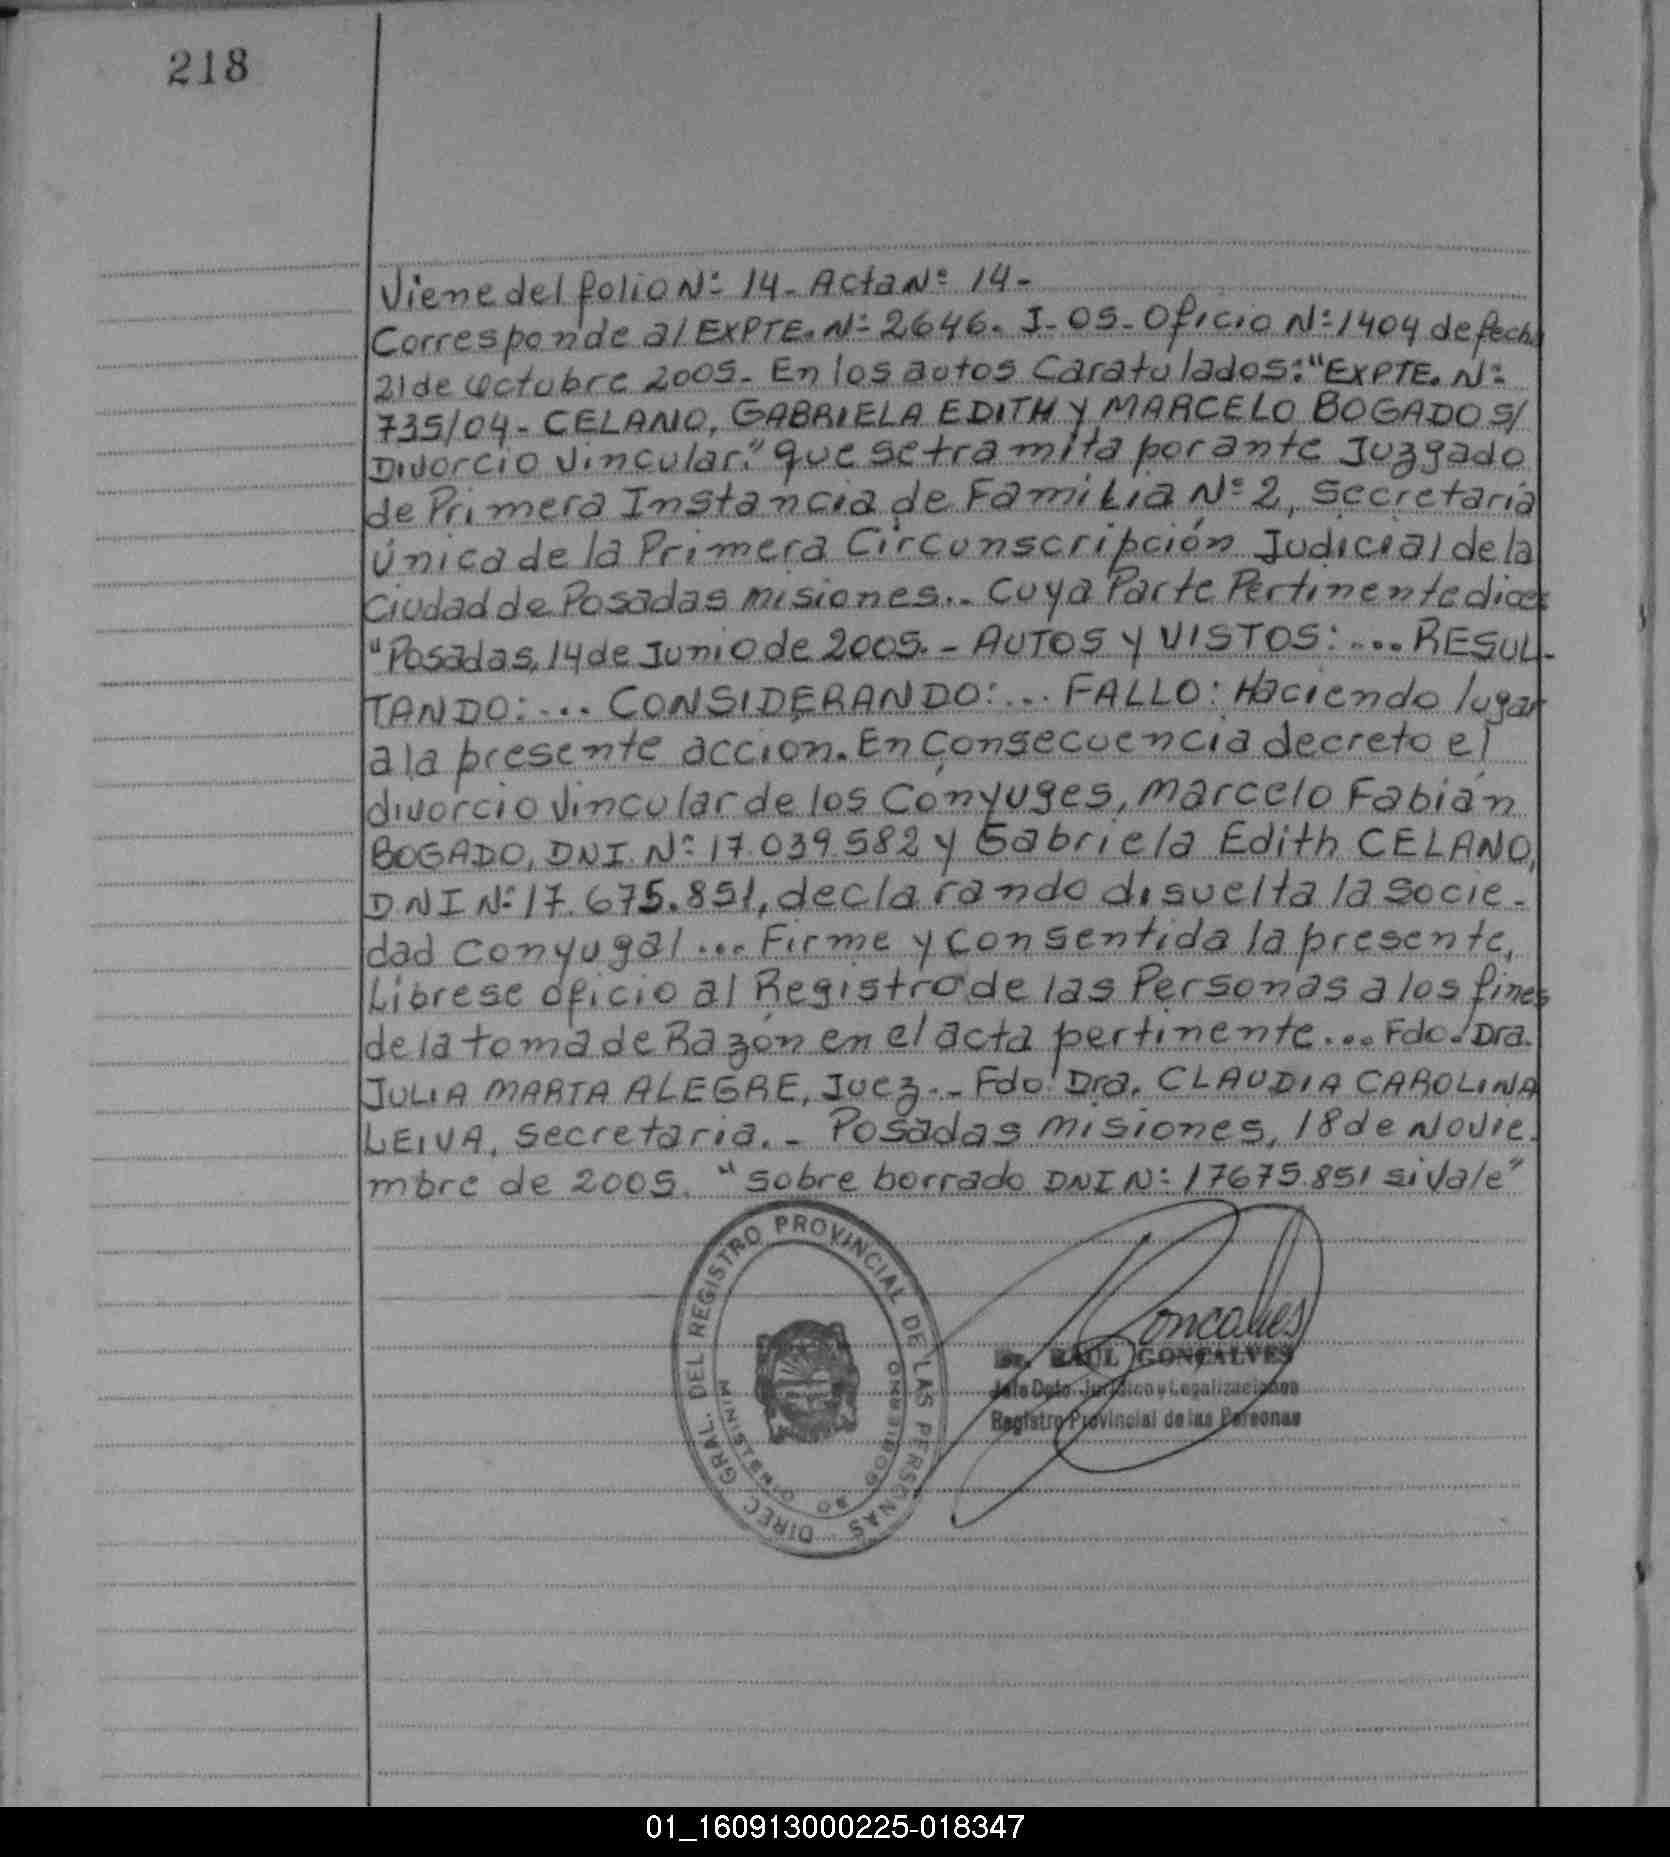 218
Viene del folio Nº 14 - Acta Nº 14 -
Corresponde al EXPTE. Nº 2646. I - 05 - Oficio Nº 1404 de fecha
21 de octubre 2005 - En los autos Caratulados: "EXPTE. Nº
735/04 - CELANO, GABRIELA EDITH y MARCELO BOGADO S/
Divorcio Vincular." que se tramita por ante Juzgado
de Primera Instancia de Familia Nº 2, Secretaría
Única de la Primera Circunscripción Judicial de la
Ciudad de Posadas Misiones.. Cuya Parte Pertinente dice:
"Posadas, 14 de Junio de 2005. - AUTOS y VISTOS: .... RESUL-
TANDO: ... CONSIDERANDO: ... FALLO: Haciendo lugar
a la presente accion. En Consecuencia decreto el
divorcio vincular de los Cónyuges, Marcelo Fabián
BOGADO, DNI Nº 17.039.582 y Gabriela Edith CELANO,
DNI Nº 17.675.851, declarando disuelta la Socie-
dad Conyugal ... Firme y consentida la presente,
Librese oficio al Registro de las Personas a los fines
de la toma de Razón en el acta pertinente ... Fdo. Dra.
JULIA MARTA ALEGRE, Juez.- Fdo. Dra. CLAUDIA CAROLINA
LEIVA, Secretaria. - Posadas Misiones, 18 de Novie-
mbre de 2005. "Sobre borrado DNI Nº 17675.851 si vale"
DIREC. GRAL. DEL REGISTRO PROVINCIAL DE LAS PERSONAS
MINISTERIO DE GOBIERNO
Goncalves
Dr. RAUL GONCALVES
Jefe Dpto. Jurídico y Legalizaciones
Registro Provincial de las Personas
01_160913000225-018347